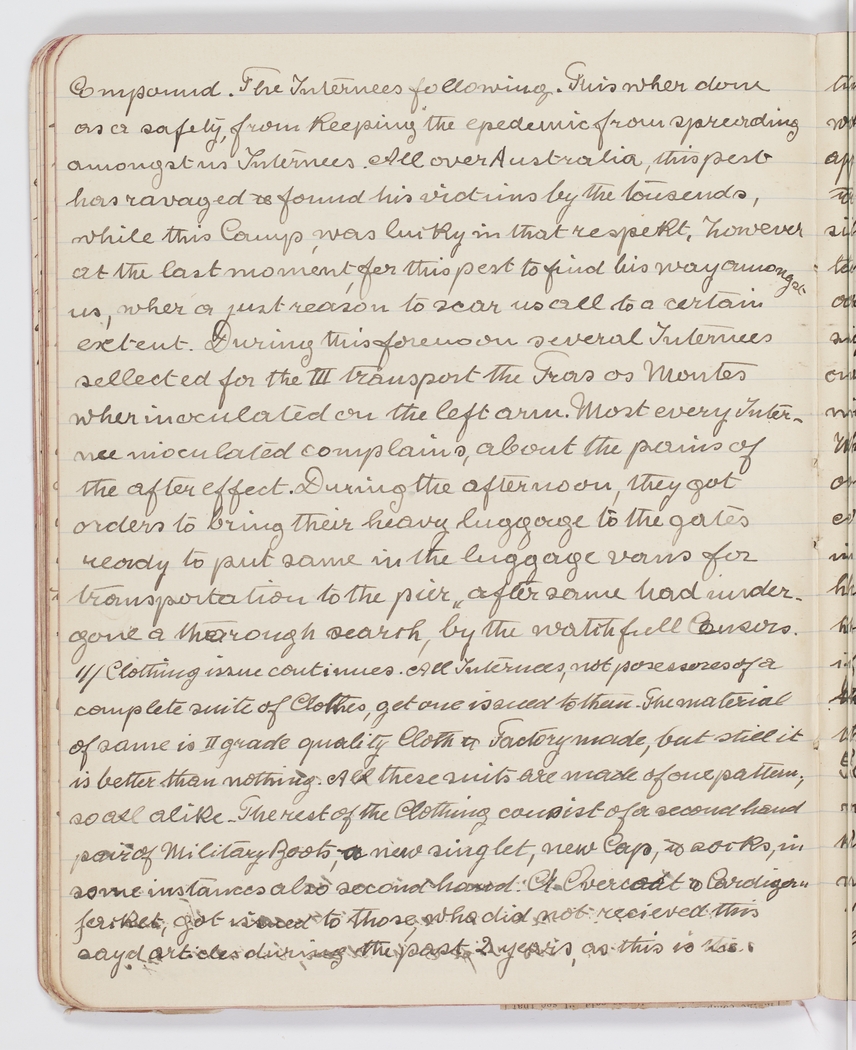 Compound. The Internees following. This wher done
as a safety, from keeping the epedemic from spreading
amongst us Internees. All over Australia, this pest
has ravaged & found his victims by the tousends,
while this Camp, was lucky in that respekt, however
at the last moment, for this pest to find his way amongst
us, wher a just reason to scar us all to a certain
extent. During this forenoon several Internees
sellected for the III transport the Tras os Montes
wher inoculated on the left arm. Most every Inter-
nee inoculated complains, about the pains of
the after effect. During the afternoon, they got
orders to bring their heavy luggage to the gates
ready to put same in the luggage vans for
transportation to the pier, after same had under-
gone a thorough search, by the watchfull Censors.
11/ Clothing issue continues. All Internees, not possessores of a
complete suite of Clothes, get one issued to them. The material
of same is II grade quality Cloth & Factory made, but still it
is better than nothing. All these suits are made of one pattern,
so all alike. The rest of the Clothing consist of a second hand
pair of Military Boots, a new singlet, new Cap, & socks, in
some instances also second hand. A Overcoat & Cardigan
Jerket, got issued to those, who did not recieved this
sayd articles during the past 2 years, as this is